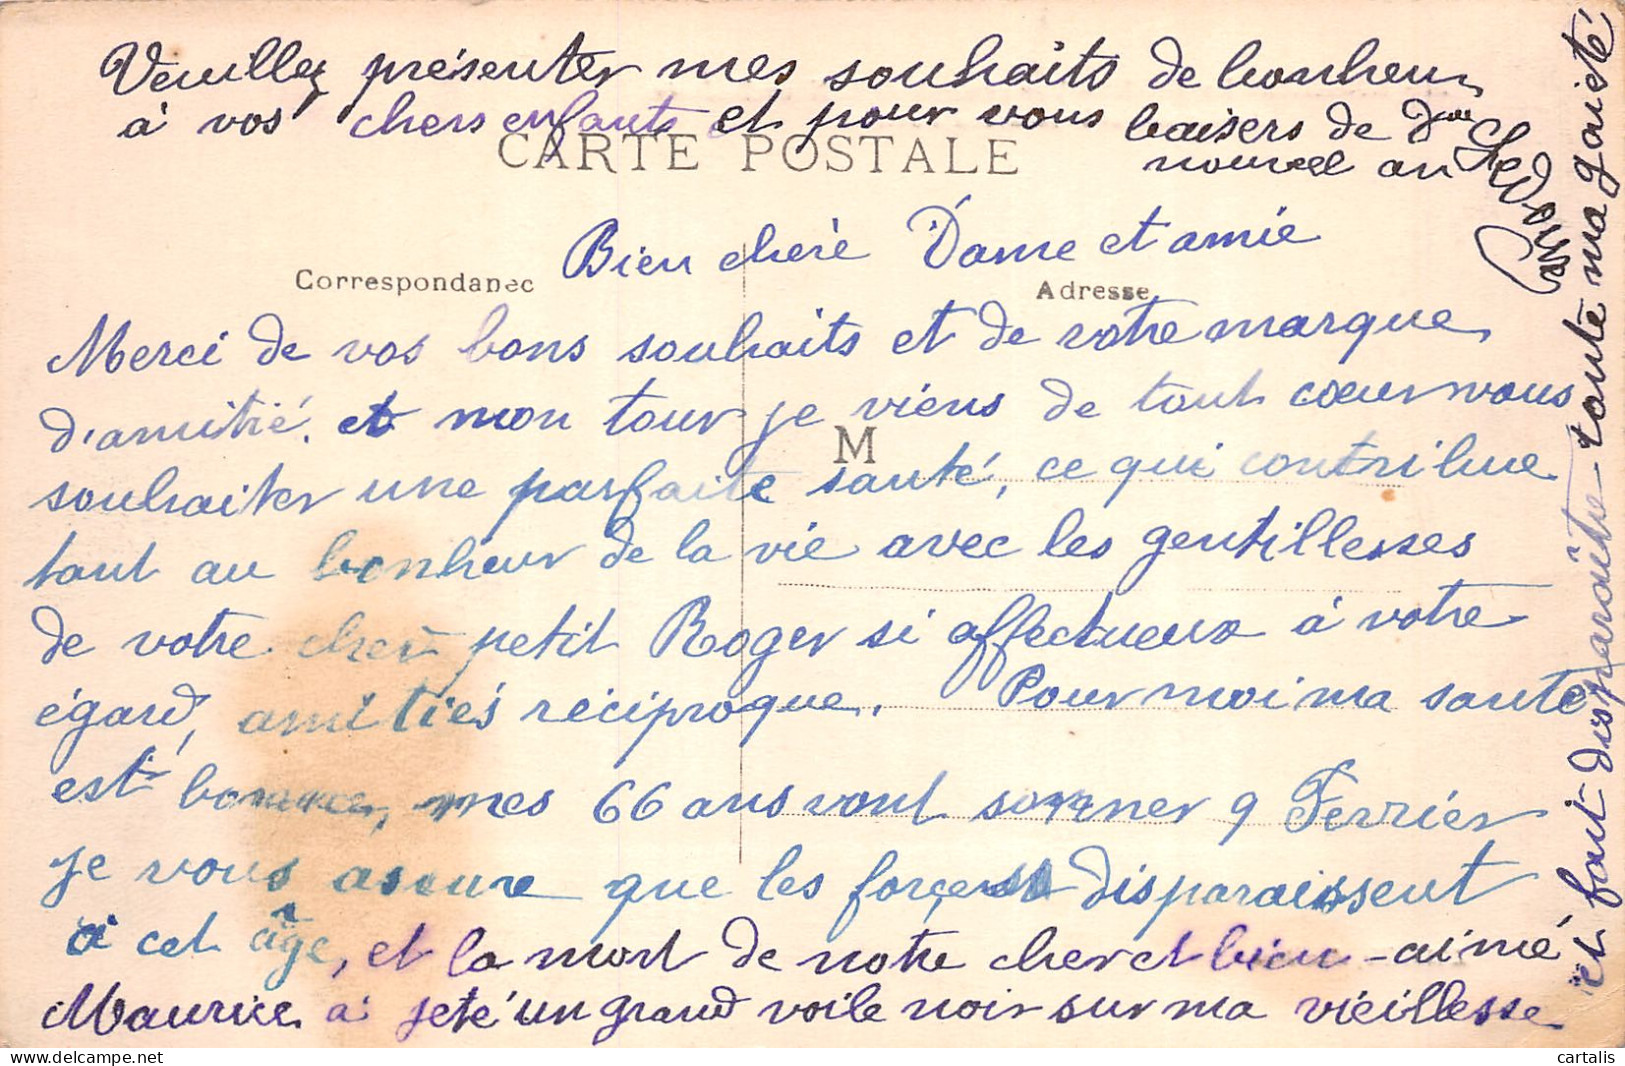 Veuillez présenter mes souhaits de bonheur
à vos chers enfants et pour vous baisers de
nouvel an
CARTE POSTALE
Bien chère Dame et amie
Correspondance
Adresse
Merci de vos bons souhaits et de votre marque
d'amitié, et mon tour je viens de tout coeur vous
M
souhaiter une parfaite santé, ce qui contribue
tant au bonheur de la vie avec les gentillesses
de votre cher petit Roger si affectueux à votre
égard, amitiés réciproque. Pour moi ma santé
est bonne, mes 66 ans vont sonner 9 Ferrier
je vous assure que les forces disparaissent
à cet âge, et la mort de notre cher et bien-aimé
Maurice a jeté un grand voile noir sur ma vieillesse
et fait disparaître toute ma gaieté
cartalis